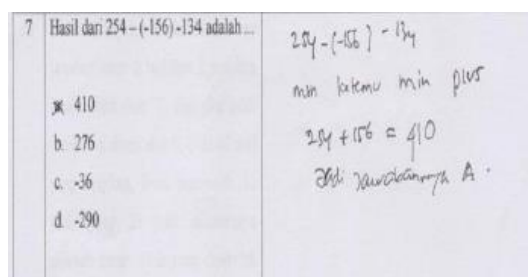 7 Hasil dari 254 – (-156) -134 adalah ...
a. 410
b. 276
c. -36
d. -290
254 - (-156) - 134
min ketemu min plus
254 + 156 = 410
Jadi jawabannya A.